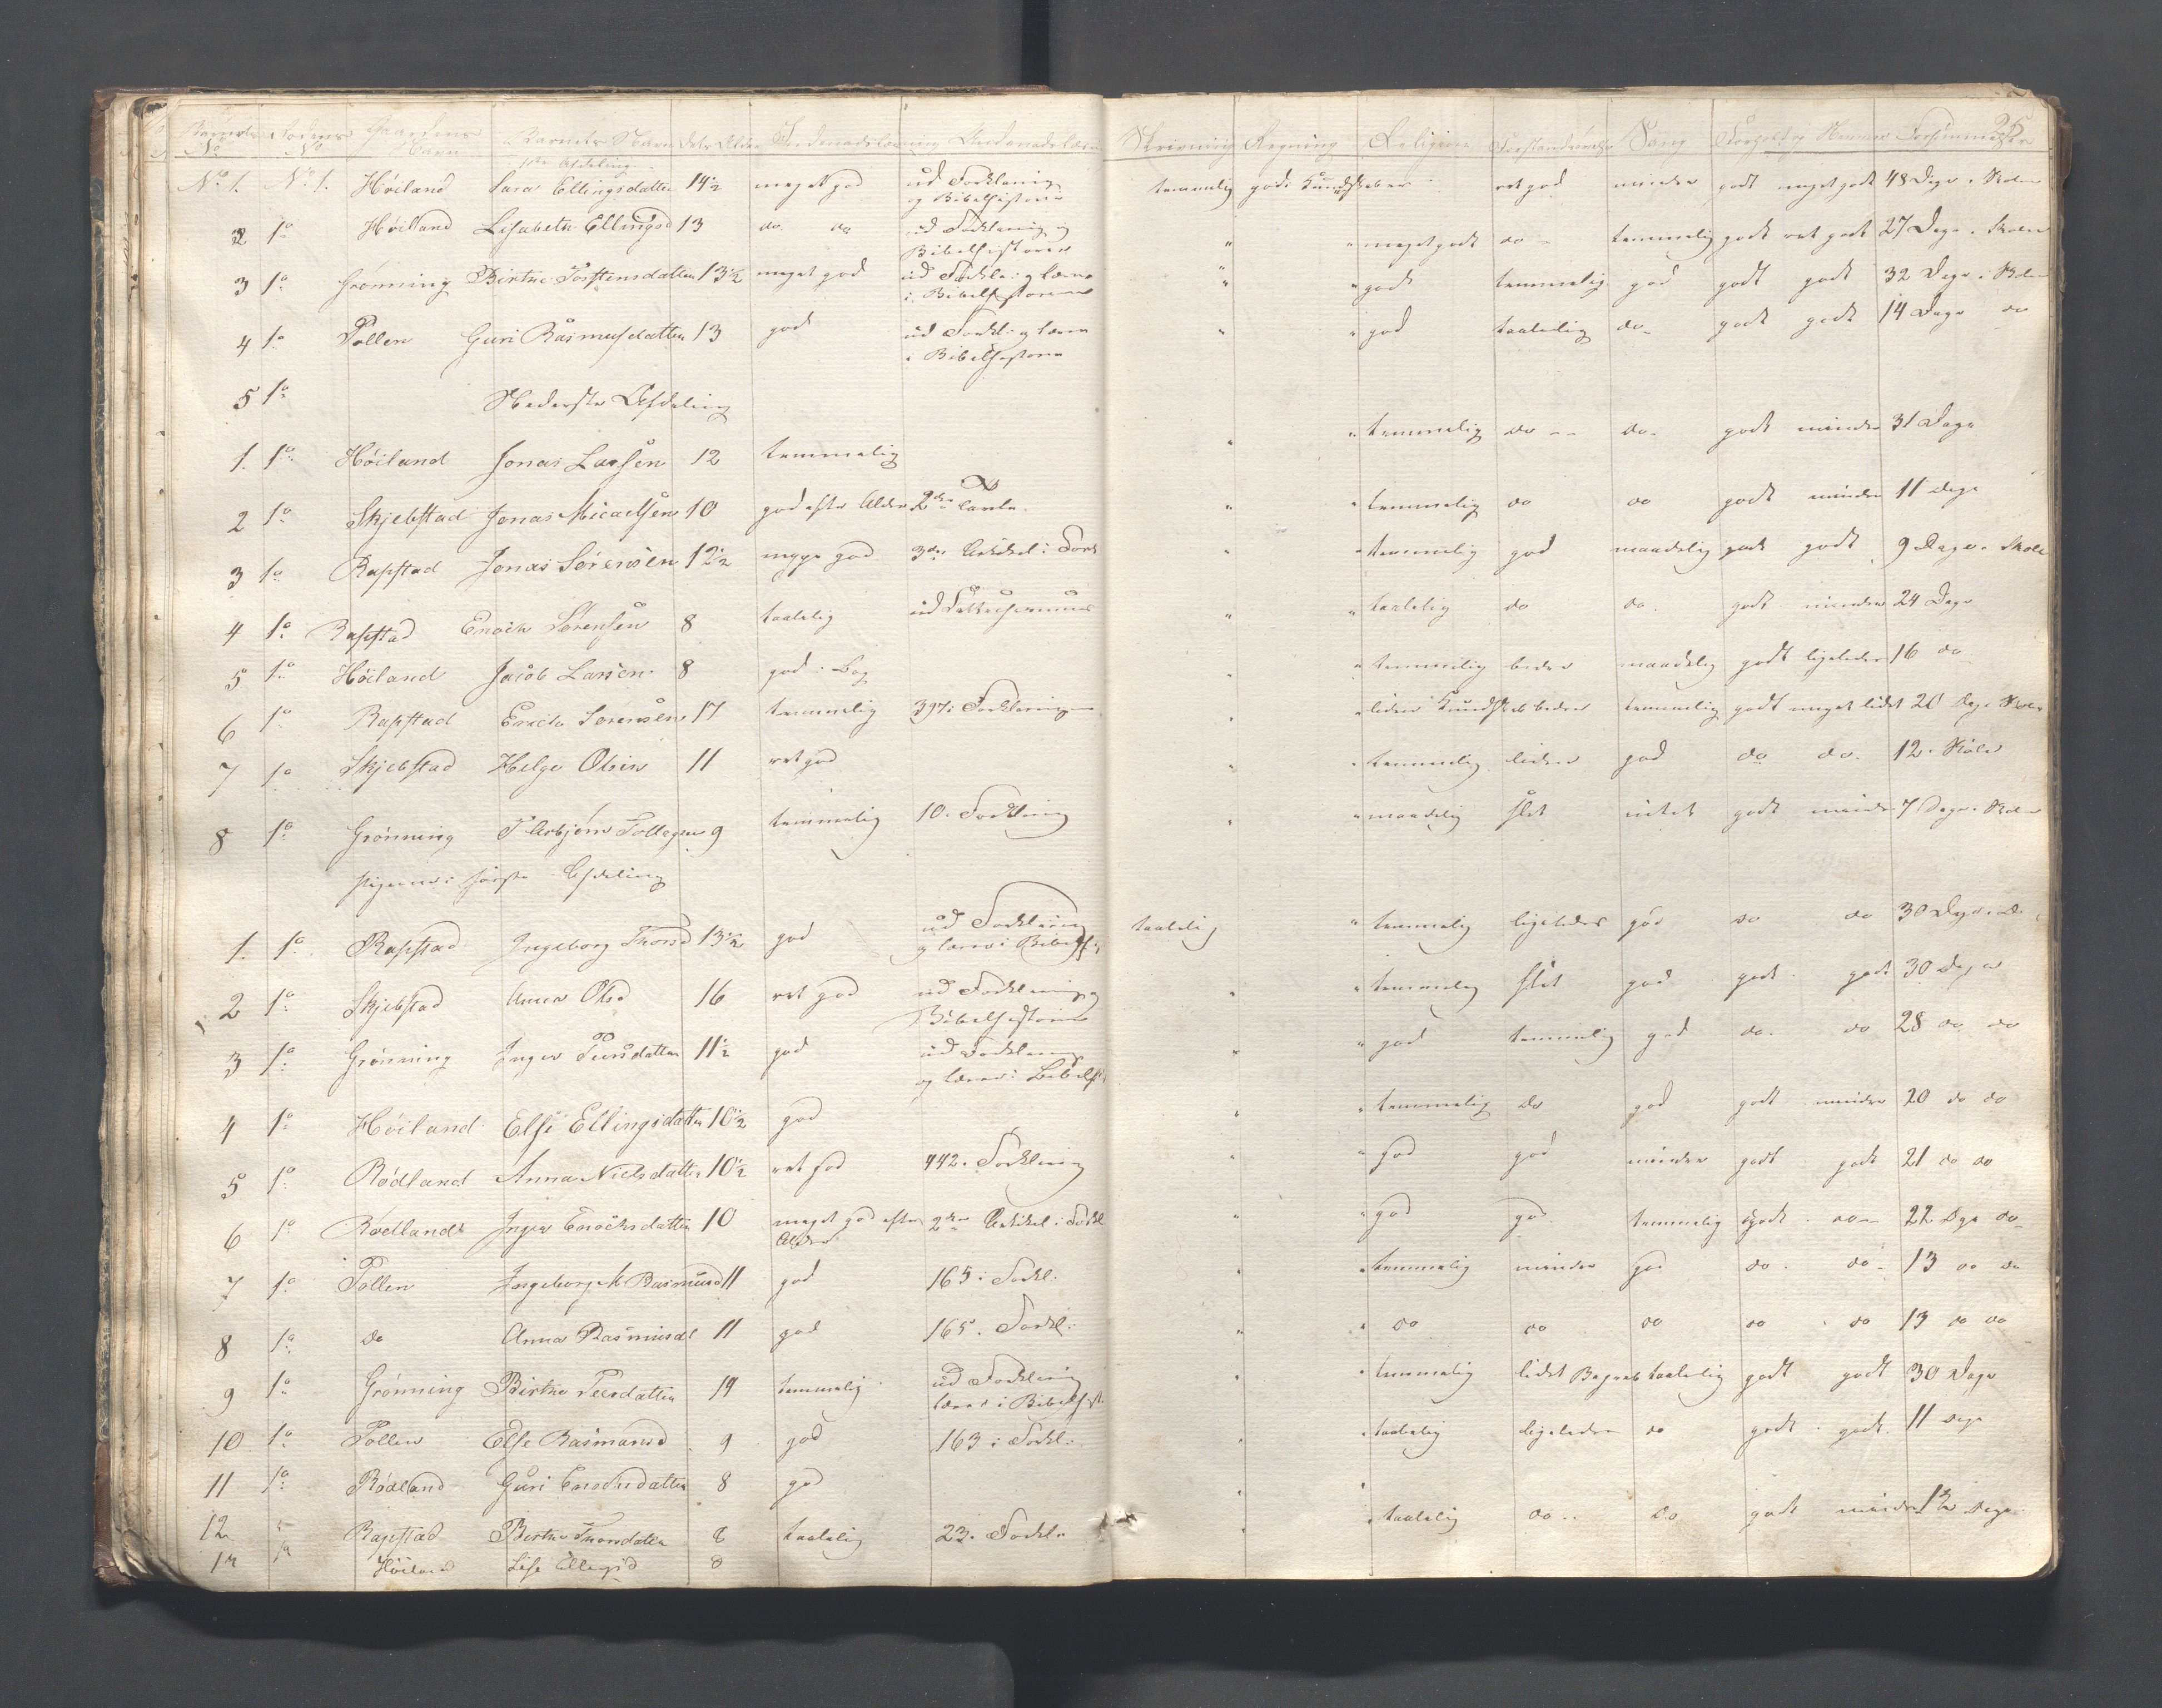 Barnets No Rodens No Gaardens Navn Barnets Navn Dets Alder Indenadslæsning Skrivning Regning Religion Sang Forsømmelse
1ste Afdeling
No 1. No 1. Høiland Sara Ellingsdatter 14½ meget god ud Forklaring og Bibelhistorie temmelig gode Kundskaber ret god mindre godt meget godt 48 Dage i Skolen
2 1o Høiland Lisabeth Ellingsd 13 do do ud Forklaring og Bibelhistorien " " meget godt do temmelig godt ret godt 27 Dage i Skolen
3 1o Grønning Birthe Torstensdatter 13½ meget god ud Forkla: og læser i Bibelhistorien " " godt temmelig god godt godt 32 Dage i Skolen
4 1o Tollen Guri Rasmusdatter 13 god ud Forkl: og læser i Bibelhistorien " " god taalelig do godt godt 14 Dage do
5 1o Nederste Afdeling
1. 1o Høiland Jonas Larsen 12 temmelig " " temmelig do do godt mindre 31 Dage
2 1o Skjebstad Jonas Micaelsen 10 god efter Alder 2den Parto " " temmelig do do godt mindre 11 Dage
3 1o Rapstad Jonas Sørensen 12½ god 3die Artikel i Fork " " temmelig god maadelig godt godt 9 Dage i Skole
4 1o Rapstad Enoch Sørensen 8 taalelig " " taalelig do do godt mindre 24 Dage
5 1o Høiland Jacob Larsen 8 god i Bog " " temmelig bedre maadelig godt ligeledes 16 do
6 1o Rapstad Erich Sørensen 17 temmelig 397 i Forklaringen " " liden Kundskab bedre temmelig godt meget lidet 20 Dage i Skolen
7 1o Skjebstad Helge Olsen 11 ret god " " temmelig liden god do do 12 i Skolen
8 1o Grønning Asbjørn Tollagsen 9 temmelig 10 i Forklaring " " maadelig slet intet godt mindre 7 Dage i Skolen
Pigerne i første Afdeling
1. 1o Rapstad Ingeborg Thorsd 13½ god ud Forklaring og læser i Bibelhi taalelig " temmelig ligeledes god do do 30 Dage
2 1o Skjebstad Anna Olsd 16 ret god ud Forklaring og Bibelhistorien " " temmelig slet god godt godt 30 Dage
3 1o Grønning Inger Tursdatter 11½ god ud Forklaring og læser i Bibelhi " " god temmelig god do do 28 do do
4 1o Høiland Else Ellingsdatter 10½ god " " temmelig do god godt mindre 20 do do
5 1o Rødland Anna Nielsdatter 10½ ret god 442 i Forklaring " " god god mindre godt godt 21 do do
6 1o Rødland Inger Enochsdatter 10 meget god efter Alder 2den Artikel i Forkl " " god god temmelig godt do 22 Dge do
7 1o Tollen Ingeborg M Rasmusd 11 god 165 i Forkl: " " temmelig mindre god do do 13 do do
8 1o do Anna Rasmusd 11 god 165 i Forkl: " " do do do do do 13 do do
9 1o Grønning Birthe Teesdatter 14 temmelig ud Forklaring læser i Bibelhist " " temmelig lidet Begreb taalelig godt godt 30 Dage
10 1o Tollen Else Rasmusd 9 god 163 i Forkl: " " taalelig ligeledes do godt godt 11 Dage
11 1o Rødland Guri Enochsdatter 8 god " "
12 1o Rapstad Birthe Thorsdatter 8 taalelig 23 i Forkla " " taalelig do do godt mindre 12 Dage
1o Høiland Lise Ellingsd 8